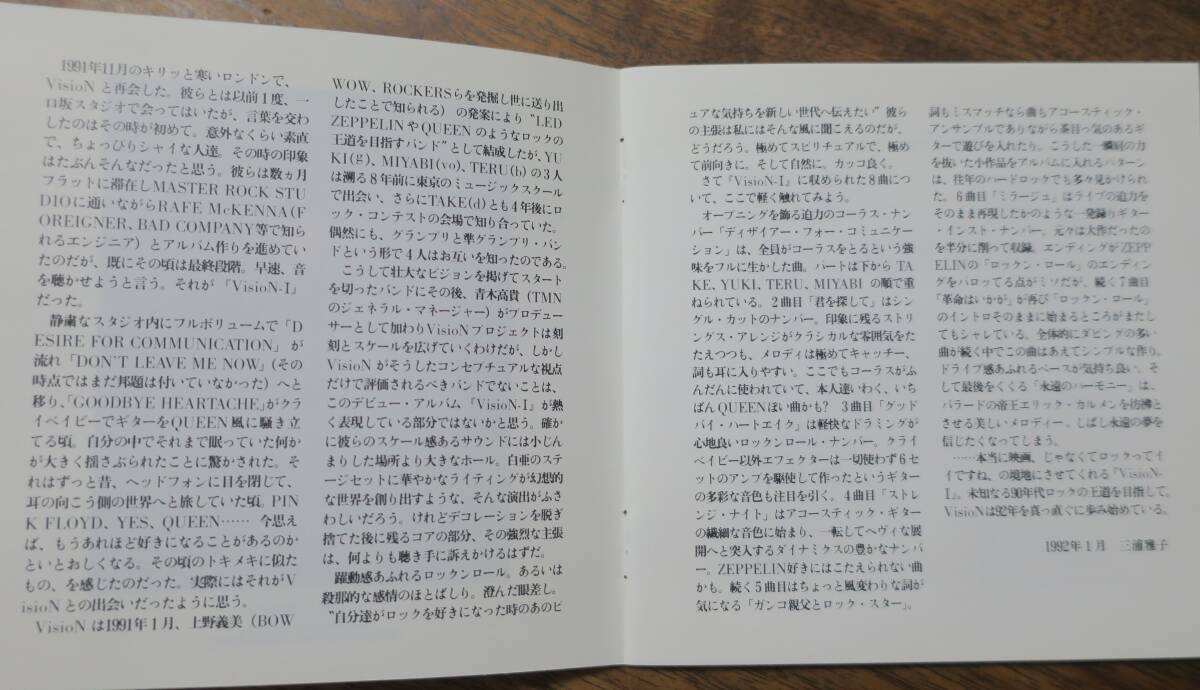 1991年11月のキリッと寒いロンドンで、
VisioN と再会した。彼らとは以前1度、一
口坂スタジオで会ってはいたが、言葉を交わ
したのはその時が初めて。意外なくらい素直
で、ちょっぴりシャイな人達。その時の印象
はたぶんそんなだったと思う。彼らは数ヵ月
フラットに滞在しMASTER ROCK STU
DIOに通いながらRAFE McKENNA(F
OREIGNER, BAD COMPANY等で知ら
れるエンジニア)とアルバム作りを進めてい
たのだが、既にその頃は最終段階。早速、音
を聴かせようと言う。それが『VisioN-I』
だった。
静粛なスタジオ内にフルボリュームで「D
ESIRE FOR COMMUNICATION」が
流れ「DON'T LEAVE ME NOW」(その
時点ではまだ邦題は付いていなかった)へと
移り、「GOODBYE HEARTACHE」がクラ
イベイビーでギターをQUEEN風に騒き立
てる頃。自分の中でそれまで眠っていた何か
が大きく揺さぶられたことに驚かされた。そ
れはずっと昔、ヘッドフォンに目を閉じて、
耳の向こう側の世界へと旅していた頃。PIN
K FLOYD、YES、QUEEN…… 今思え
ば、もうあれほど好きになることがあるのか
といとおしくなる。その頃のトキメキに似た
もの、を感じたのだった。実際にはそれがV
isioN との出会いだったように思う。
VisioN は1991年1月、上野義美(BOW
WOW、ROCKERSらを発掘し世に送り出
したことで知られる)の発案により“LED
ZEPPELINやQUEENのようなロックの
王道を目指すバンド”として結成したが、YU
KI(g)、MIYABI(vo)、TERU(b)の3人
は溯る8年前に東京のミュージックスクール
で出会い、さらにTAKE(d)とも4年後にロ
ック・コンテストの会場で知り合っていた。
偶然にも、グランプリと準グランプリ・バン
ドという形で4人はお互いを知ったのである。
こうして壮大なビジョンを掲げてスタート
を切ったバンドにその後、青木高貴(TMN
のジェネラル・マネージャー)がプロデュー
サーとして加わりVisioNプロジェクトは刻
刻とスケールを広げていくわけだが、しかし
VisioNがそうしたコンセプチュアルな視点
だけで評価されるべきバンドでないことは、
このデビュー・アルバム『VisioN-I』が熱
く表現している部分ではないかと思う。確か
に彼らのスケール感あるサウンドには小じん
まりした場所より大きなホール。白亜のステ
ージセットに華やかなライティングが幻想的
な世界を創り出すような、そんな演出がふさ
わしいだろう。けれどデコレーションを脱ぎ
捨てた後に残るコアの部分、その強烈な主張
は、何よりも聴き手に訴えかけるはずだ。
躍動感あふれるロックンロール。あるいは
殺那的な感情のほとばしり。澄んだ眼差し。
“自分達がロックを好きになった時のあのピ
ュアな気持ちを新しい世代へ伝えたい”彼ら
の主張は私にはそんな風に聞こえるのだが、
どうだろう。極めてスピリチュアルで、極め
て前向きに。そして自然に。カッコ良く。
さて『VisioN-I』に収められた8曲につ
いて、ここで軽く触れてみよう。
オープニングを飾る迫力のコーラス・ナン
バー「ディザイアー・フォー・コミュニケー
ション」は、全員がコーラスをとるという強
味をフルに生かした曲。パートは下から TA
KE、YUKI、TERU、MIYABI の順で重
ねられている。2曲目「君を探して」はシン
グル・カットのナンバー。印象に残るストリ
ングス・アレンジがクラシカルな雰囲気をた
たえつつも、メロディは極めてキャッチー、
詞も耳に入りやすい。ここでもコーラスがふ
んだんに使われていて、本人達いわく、いち
ばんQUEENぽい曲かも? 3曲目「グッド
バイ・ハートエイク」は軽快なドラミングが
心地良いロックンロール・ナンバー。クライ
ベイビー以外エフェクターは一切使わず6セ
ットのアンプを駆使して作ったというギター
の多彩な音色も注目を引く。4曲目「ストレ
ンジ・ナイト」はアコースティック・ギター
の繊細な音色に始まり、一転してヘヴィな展
開へと突入するダイナミクスの豊かなナンバ
ー。ZEPPELIN好きにはこたえられない曲
かも。続く5曲目はちょっと風変わりな詞が
気になる「ガンコ親父とロック・スター」。
詞もミスマッチなら曲もアコースティック・
アンサンブルでありながら茶目っ気のあるギ
ターで遊びを入れたり。こうした一瞬肩の力
を抜いた小作品をアルバムに入れるパターン
は、往年のハードロックでも多々見かけられ
た。6曲目「ミラージュ」はライブの迫力を
そのまま再現したかのような一発録りギター
・インスト・ナンバー。元々は大作だったの
を半分に削って収録。エンディングがZEPP
ELINの「ロックン・ロール」のエンディン
グをパロってる点がミソだが、続く7曲目
「革命はいかが」が再び「ロックン・ロール」
のイントロそのままに始まるところがまたし
てもシャレている。全体的にダビングの多い
曲が続く中でこの曲はあえてシンプルな作り。
ドライブ感あふれるベースが気持ち良い。そ
して最後をくくる「永遠のハーモニー」は、
バラードの帝王エリック・カルメンを彷彿と
させる美しいメロディー。しばし永遠の夢を
信じたくなってしまう。
……本当に映画、じゃなくてロックってイ
イですね。の境地にさせてくれる『VisioN-
I』。未知なる90年代ロックの王道を目指して、
VisioNは92年を真っ直ぐに歩み始めている。
1992年1月 三浦雅子